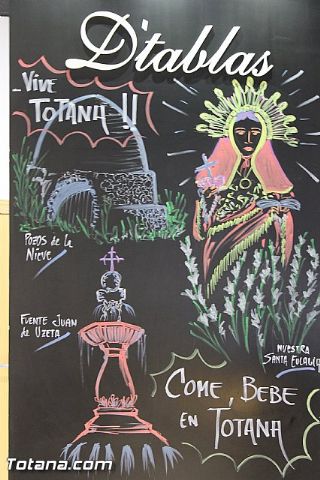 D'tablas
_Vive
TOTANA !!
POZOS DE LA
NIEVE
FUENTE JUAN
DE UZETA
NUESTRA
SANTA EULALIA
COME, BEBE
EN
TOTANA
Totana.com